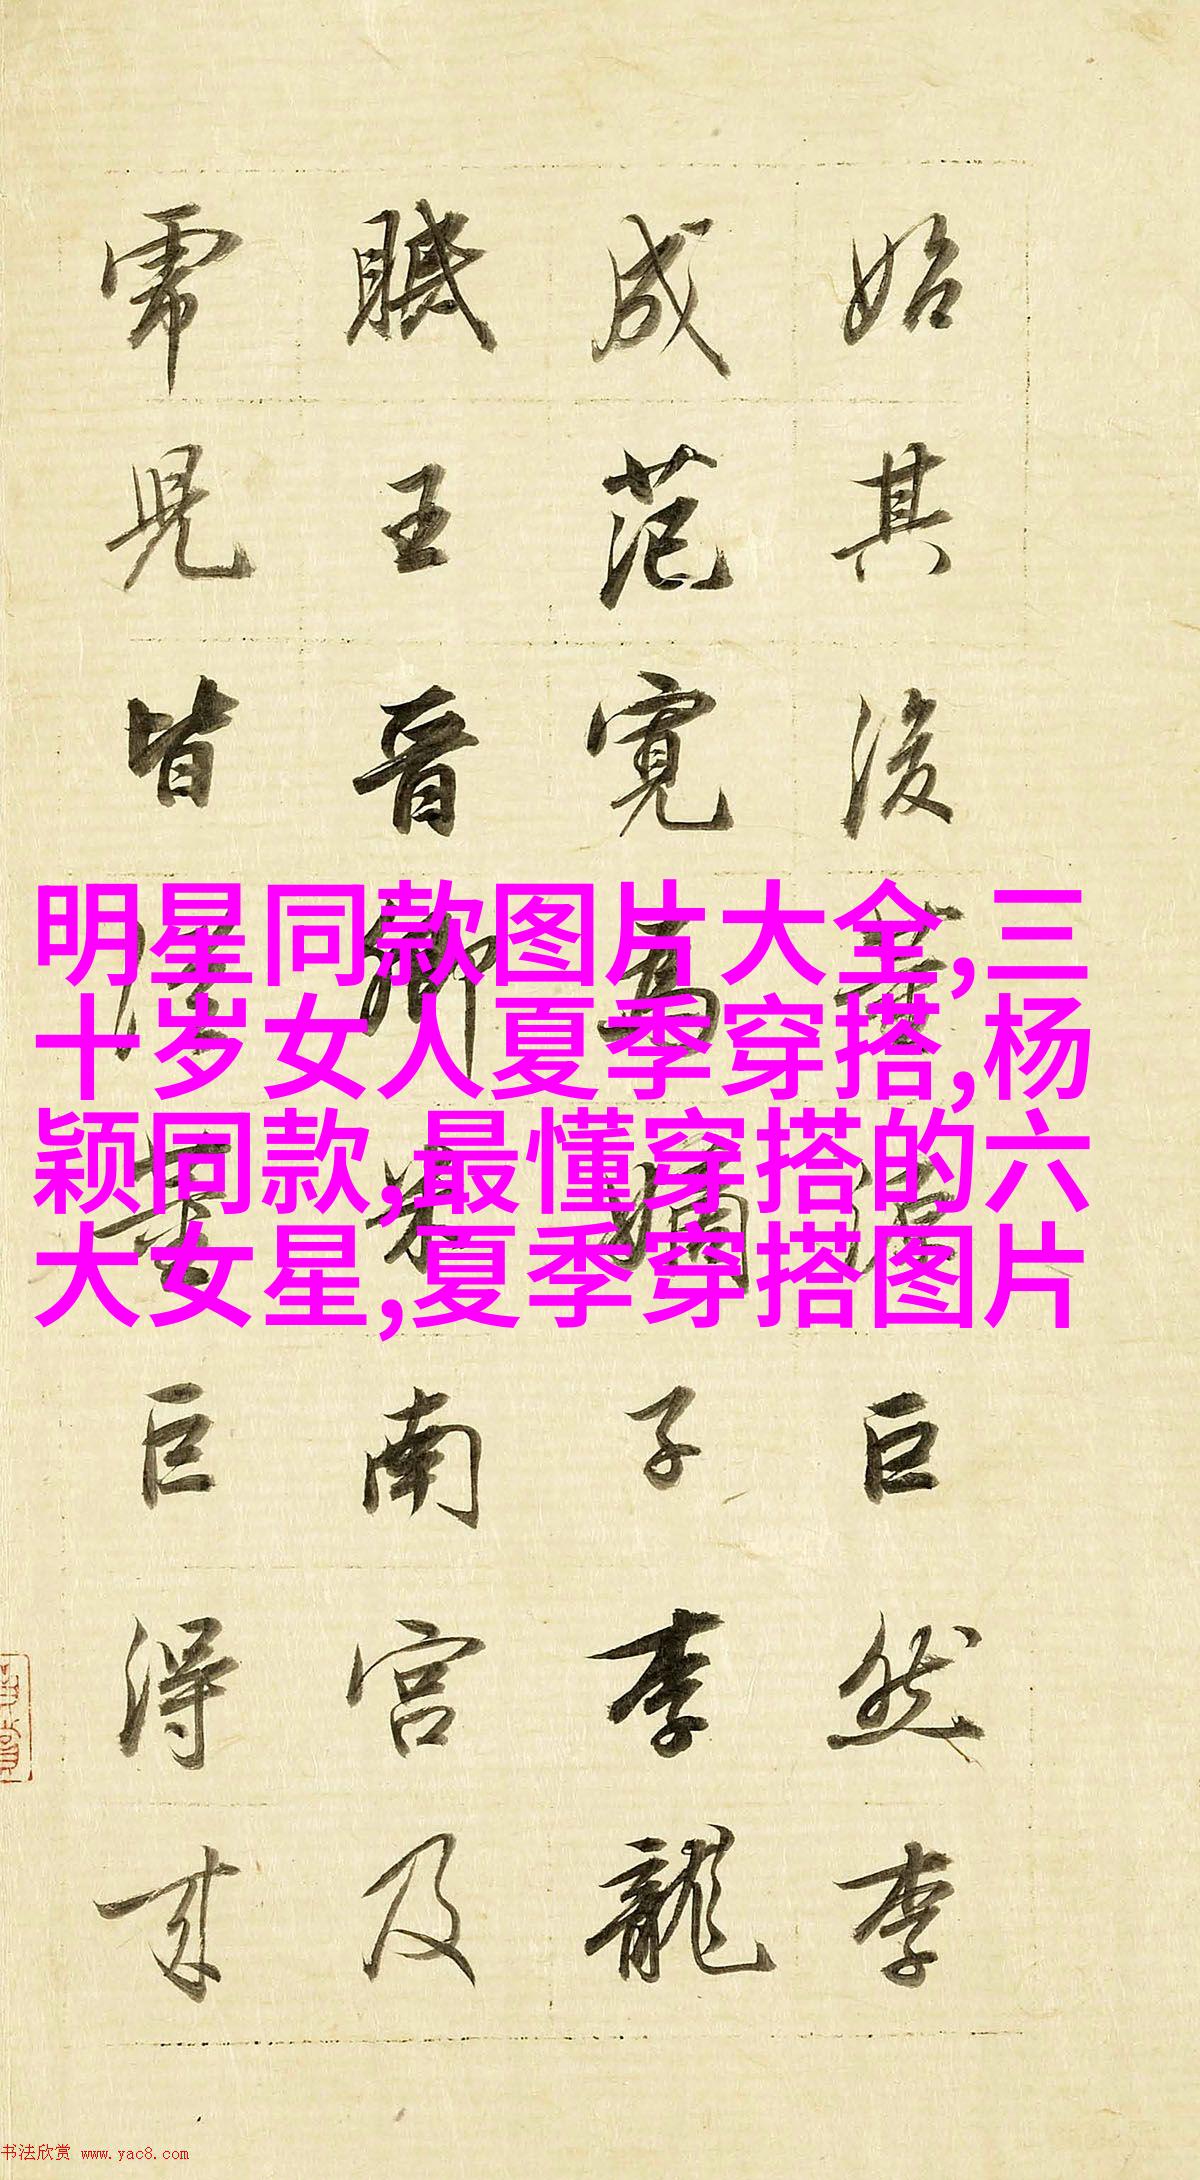 始其後董源巨然李
成范寬為嫡子李龍
眠王晉卿米南宮及
虎兒皆從董巨得来
明星同款图片大全,三
十岁女人夏季穿搭,杨
颖同款,最懂穿搭的六
大女星,夏季穿搭图片
书法欣赏 www.yac8.com